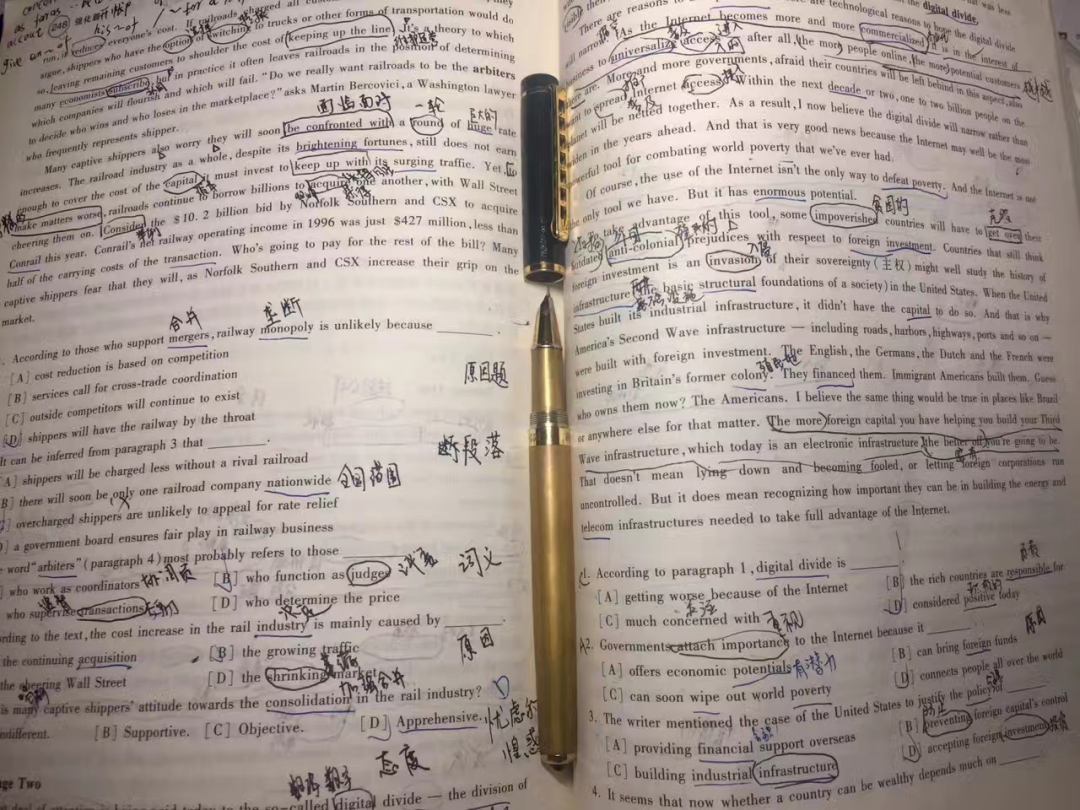 account 248 强化翻开帐户
give an~of his~of / ~for a
run, it reduces everyone's cost. If railroads charged all customers
argue, shippers who have the option of switching to trucks or other forms of transportation would do
so, leaving remaining customers to shoulder the cost of keeping up the line. It's a theory to which
many economists subscribe, but in practice it often leaves railroads in the position of determining
which companies will flourish and which will fail. "Do we really want railroads to be the arbiters
to decide who wins and who loses in the marketplace?" asks Martin Bercovici, a Washington lawyer
who frequently represents shipper.
面临面对 一轮 巨大的
Many captive shippers also worry they will soon be confronted with a round of huge rate
increases. The railroad industry as a whole, despite its brightening fortunes, still does not earn
enough to cover the cost of the capital it must invest to keep up with its surging traffic. Yet
railroads continue to borrow billions to acquire one another, with Wall Street
cheering them on. Consider the $10.2 billion bid by Norfolk Southern and CSX to acquire
Conrail this year. Conrail's net railway operating income in 1996 was just $427 million, less than
half of the carrying costs of the transaction. Who's going to pay for the rest of the bill? Many
captive shippers fear that they will, as Norfolk Southern and CSX increase their grip on the
market.
合并 垄断
According to those who support mergers, railway monopoly is unlikely because ______.
[A] cost reduction is based on competition
[B] services call for cross-trade coordination
原因题
[C] outside competitors will continue to exist
[D] shippers will have the railway by the throat
It can be inferred from paragraph 3 that ______.
断段落
[A] shippers will be charged less without a rival railroad
[B] there will soon be only one railroad company nationwide 全国范围
overcharged shippers are unlikely to appeal for rate relief
] a government board ensures fair play in railway business
word "arbiters" (paragraph 4) most probably refers to those ______
词义
who work as coordinators 协调员 [B] who function as judges
监督
who supervise transactions 交易 [D] who determine the price
决定
According to the text, the cost increase in the rail industry is mainly caused by ______.
原因
the continuing acquisition [B] the growing traffic
the cheering Wall Street [D] the shrinking market
加强合并
is many captive shippers' attitude towards the consolidation in the rail industry?
[B] Supportive. [C] Objective. [D] Apprehensive. 忧虑的
惶惑
态度
数字
so-called digital divide — the division of
digital divide.
There are reasons to
are technological reasons to
will narrow. As the Internet becomes more and more commercialized, it is in the interest of
business to universalize access — after all, the more people online, the more potential customers
there are. More and more governments, afraid their countries will be left behind in this aspect,
want to spread Internet access. Within the next decade or two, one to two billion people on the
planet will be netted together. As a result, I now believe the digital divide will narrow rather than
widen in the years ahead. And that is very good news because the Internet may well be the most
powerful tool for combating world poverty that we've ever had.
Of course, the use of the Internet isn't the only way to defeat poverty. And the Internet is not
the only tool we have. But it has enormous potential.
贫困的 克服
To take advantage of this tool, some impoverished countries will have to get over their
outdated anti-colonial prejudices with respect to foreign investment. Countries that still think
foreign investment is an invasion of their sovereignty (主权) might well study the history of
infrastructure (the basic structural foundations of a society) in the United States. When the United
States built its industrial infrastructure, it didn't have the capital to do so. And that is why
America's Second Wave infrastructure — including roads, harbors, highways, ports and so on —
were built with foreign investment. The English, the Germans, the Dutch and the French were
殖民地
investing in Britain's former colony. They financed them. Immigrant Americans built them. Guess
who owns them now? The Americans. I believe the same thing would be true in places like Brazil
or anywhere else for that matter. The more foreign capital you have helping you build your Third
Wave infrastructure, which today is an electronic infrastructure, the better off you're going to be.
That doesn't mean lying down and becoming fooled, or letting foreign corporations run
uncontrolled. But it does mean recognizing how important they can be in building the energy and
telecom infrastructures needed to take full advantage of the Internet.
1. According to paragraph 1, digital divide is ______
[A] getting worse because of the Internet [B] the rich countries are responsible for
[C] much concerned with [D] considered positive today
2. Governments attach importance to the Internet because it ______
重视 原因
[A] offers economic potentials 有潜力 [B] can bring foreign funds
[C] can soon wipe out world poverty [D] connects people all over the world
3. The writer mentioned the case of the United States to justify the policy of ______
[A] providing financial support overseas [B] preventing foreign capital's control
[C] building industrial infrastructure [D] accepting foreign investment
4. It seems that now whether a country can be wealthy depends much on ______